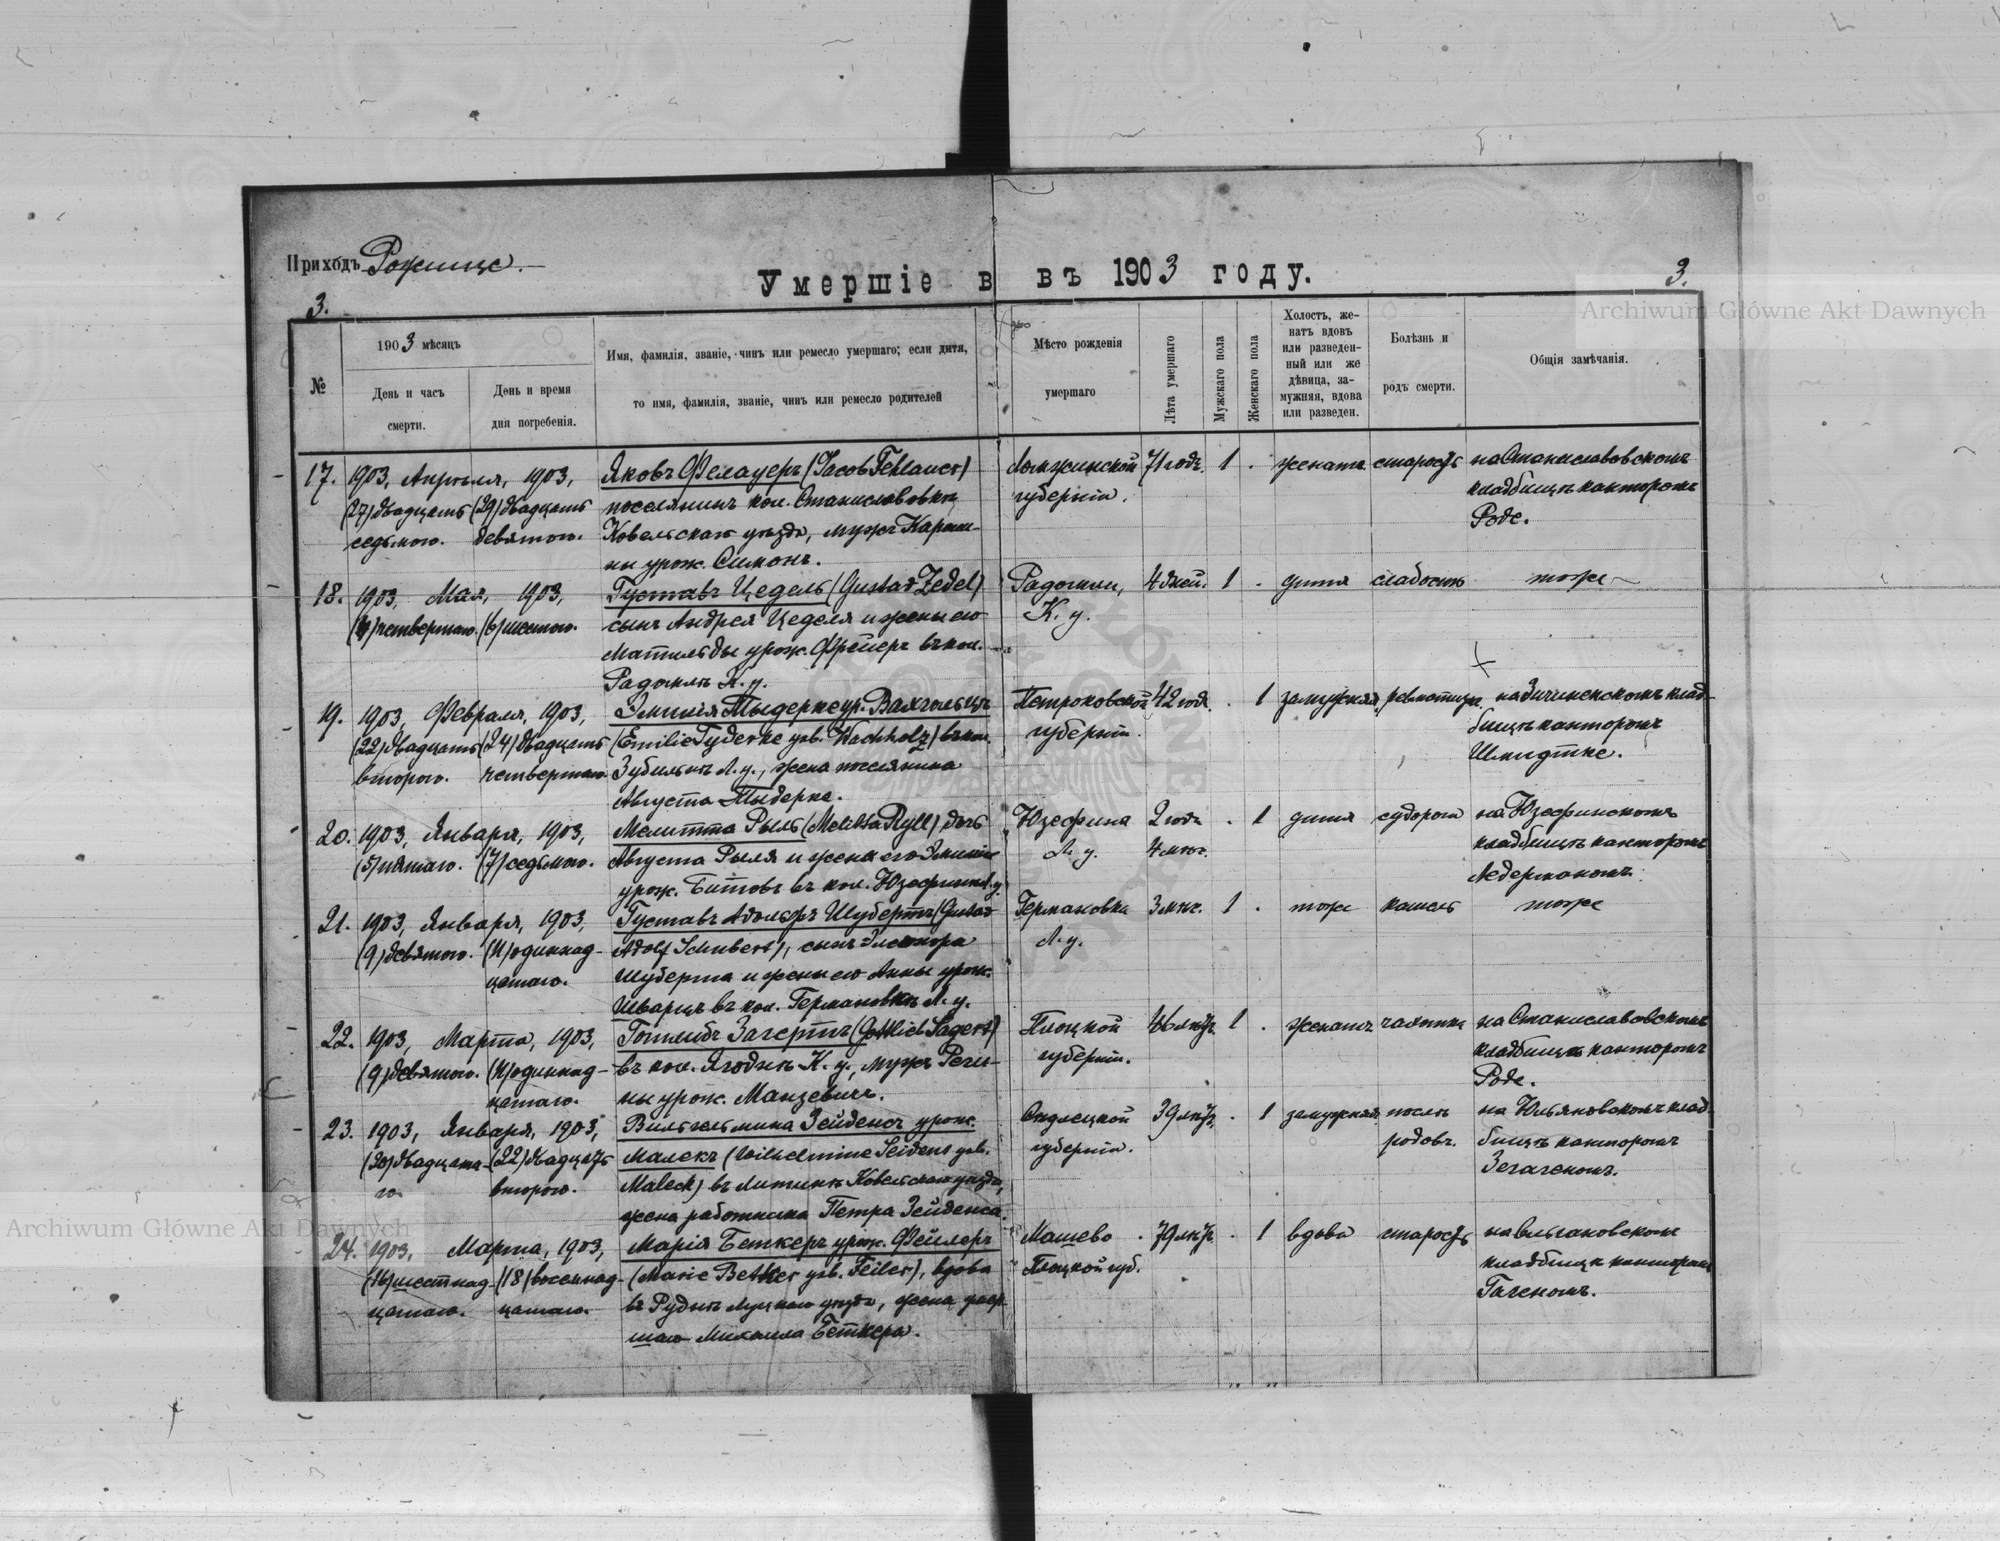 Приходъ Рожище.
Умершіе в въ 1903 году.
3.
3.
Archiwum Główne Akt Dawnych
№
1903 мѣсяцъ
День и часъ смерти.
День и время дня погребенія.
Имя, фамилія, званіе, чинъ или ремесло умершаго; если дитя,
то имя, фамилія, званіе, чинъ или ремесло родителей
Мѣсто рожденія
умершаго
Лѣта умершаго
Мужскаго пола
Женскаго пола
Холостъ, же-
натъ вдовъ
или разведен-
ный или же
дѣвица, за-
мужняя, вдова
или разведен.
Болѣзнь и
родъ смерти.
Общія замѣчанія.
17. 1903, Апрѣля, 1903, Яковъ Фелауеръ (Jacob Fehlauer) Ломжинской 71 годъ. 1 . женатъ старость на Станиславовскомъ
(27) двадцать (29) двадцать поселянинъ кол. Станиславовки губерніи. кладбищѣ канторомъ
седьмого. девятого. Ковельскаго уѣзда, мужъ Кароли- Роде.
ны урож. Симонъ.
18. 1903, Мая, 1903, Густавъ Цедель (Gustav Zedel) Радошин, 4 дней. 1 . дитя слабость тоже
(4) четвертаго. (6) шестого. сынъ Андрея Цеделя и жены его К. у.
Матильды урож. Фрейеръ въ кол.
К. у.
19. 1903, Февраля, 1903, Эмилія Тыдерке ур. Вахгольцъ Петроковской 42 года. . 1 замужняя ревматизм. клад-
(22) двадцать (24) двадцать (Emilie Tyderke geb. Wachholz) въ кол. губерніи. бищѣ канторомъ
второго. четвертаго. Зубильнѣ Л. у., жена поселянина Шмидтке.
Августа Тыдерке.
20. 1903, Января, 1903, Мелитта Рыль (Melitta Ryll) дочь Юзефина 2 года . 1 дитя судороги на Юзефинскомъ
(5) пятаго. (7) седьмого. Августа Рыля и жены его Эмиліи Л. у. 4 мѣс. кладбищѣ канторомъ
урож. въ кол. Юзефинѣ Л. у. Ледерманомъ.
21. 1903, Января, 1903, Густавъ Адольфъ Шубертъ (Gustav Германовка 3 мѣс. 1 . тоже кашель тоже
(9) девятого. (11) одиннад- Adolf Schubert), сынъ Л. у.
цатаго. Шуберта и жены его Анны урож.
Шварцъ въ кол. Германовкѣ Л. у.
22. 1903, Марта, 1903, Готлибъ Загертъ (Gottlieb Sagert) Плоцкой 46 лѣтъ. 1 . женатъ чахотка на Станиславовскомъ
(9) девятого. (11) одиннад- въ кол. Ягоднѣ К. у., мужъ Реги- губерніи. кладбищѣ канторомъ
цатаго. ны урож. Манзевичъ. Роде.
23. 1903, Января, 1903, Вильгельмина Зейденсъ урож. Сѣдлецкой 39 лѣтъ. . 1 замужняя послѣ на Юльяновскомъ клад-
(20) двадцата- (22) двадцать Малекъ (Wilhelmine Seidens geb. губерніи. родовъ. бищѣ канторомъ
го. второго. Maleck) въ Литинѣ Ковельскаго уѣзда,
жена работника Петра Зейденса.
24. 1903, Марта, 1903, Марія Беткеръ урож. Фейлеръ Машево . 79 лѣтъ. . 1 вдова старость кладбищѣ канторомъ
(16) шестнад- (18) восемнад- (Marie Betker geb. Feiler), вдова Плоцкой губ.
цатаго. цатаго. въ Рудкѣ Луцкаго уѣзда, жена умер-
шаго Михаила Беткера.
Archiwum Główne Akt Dawnych